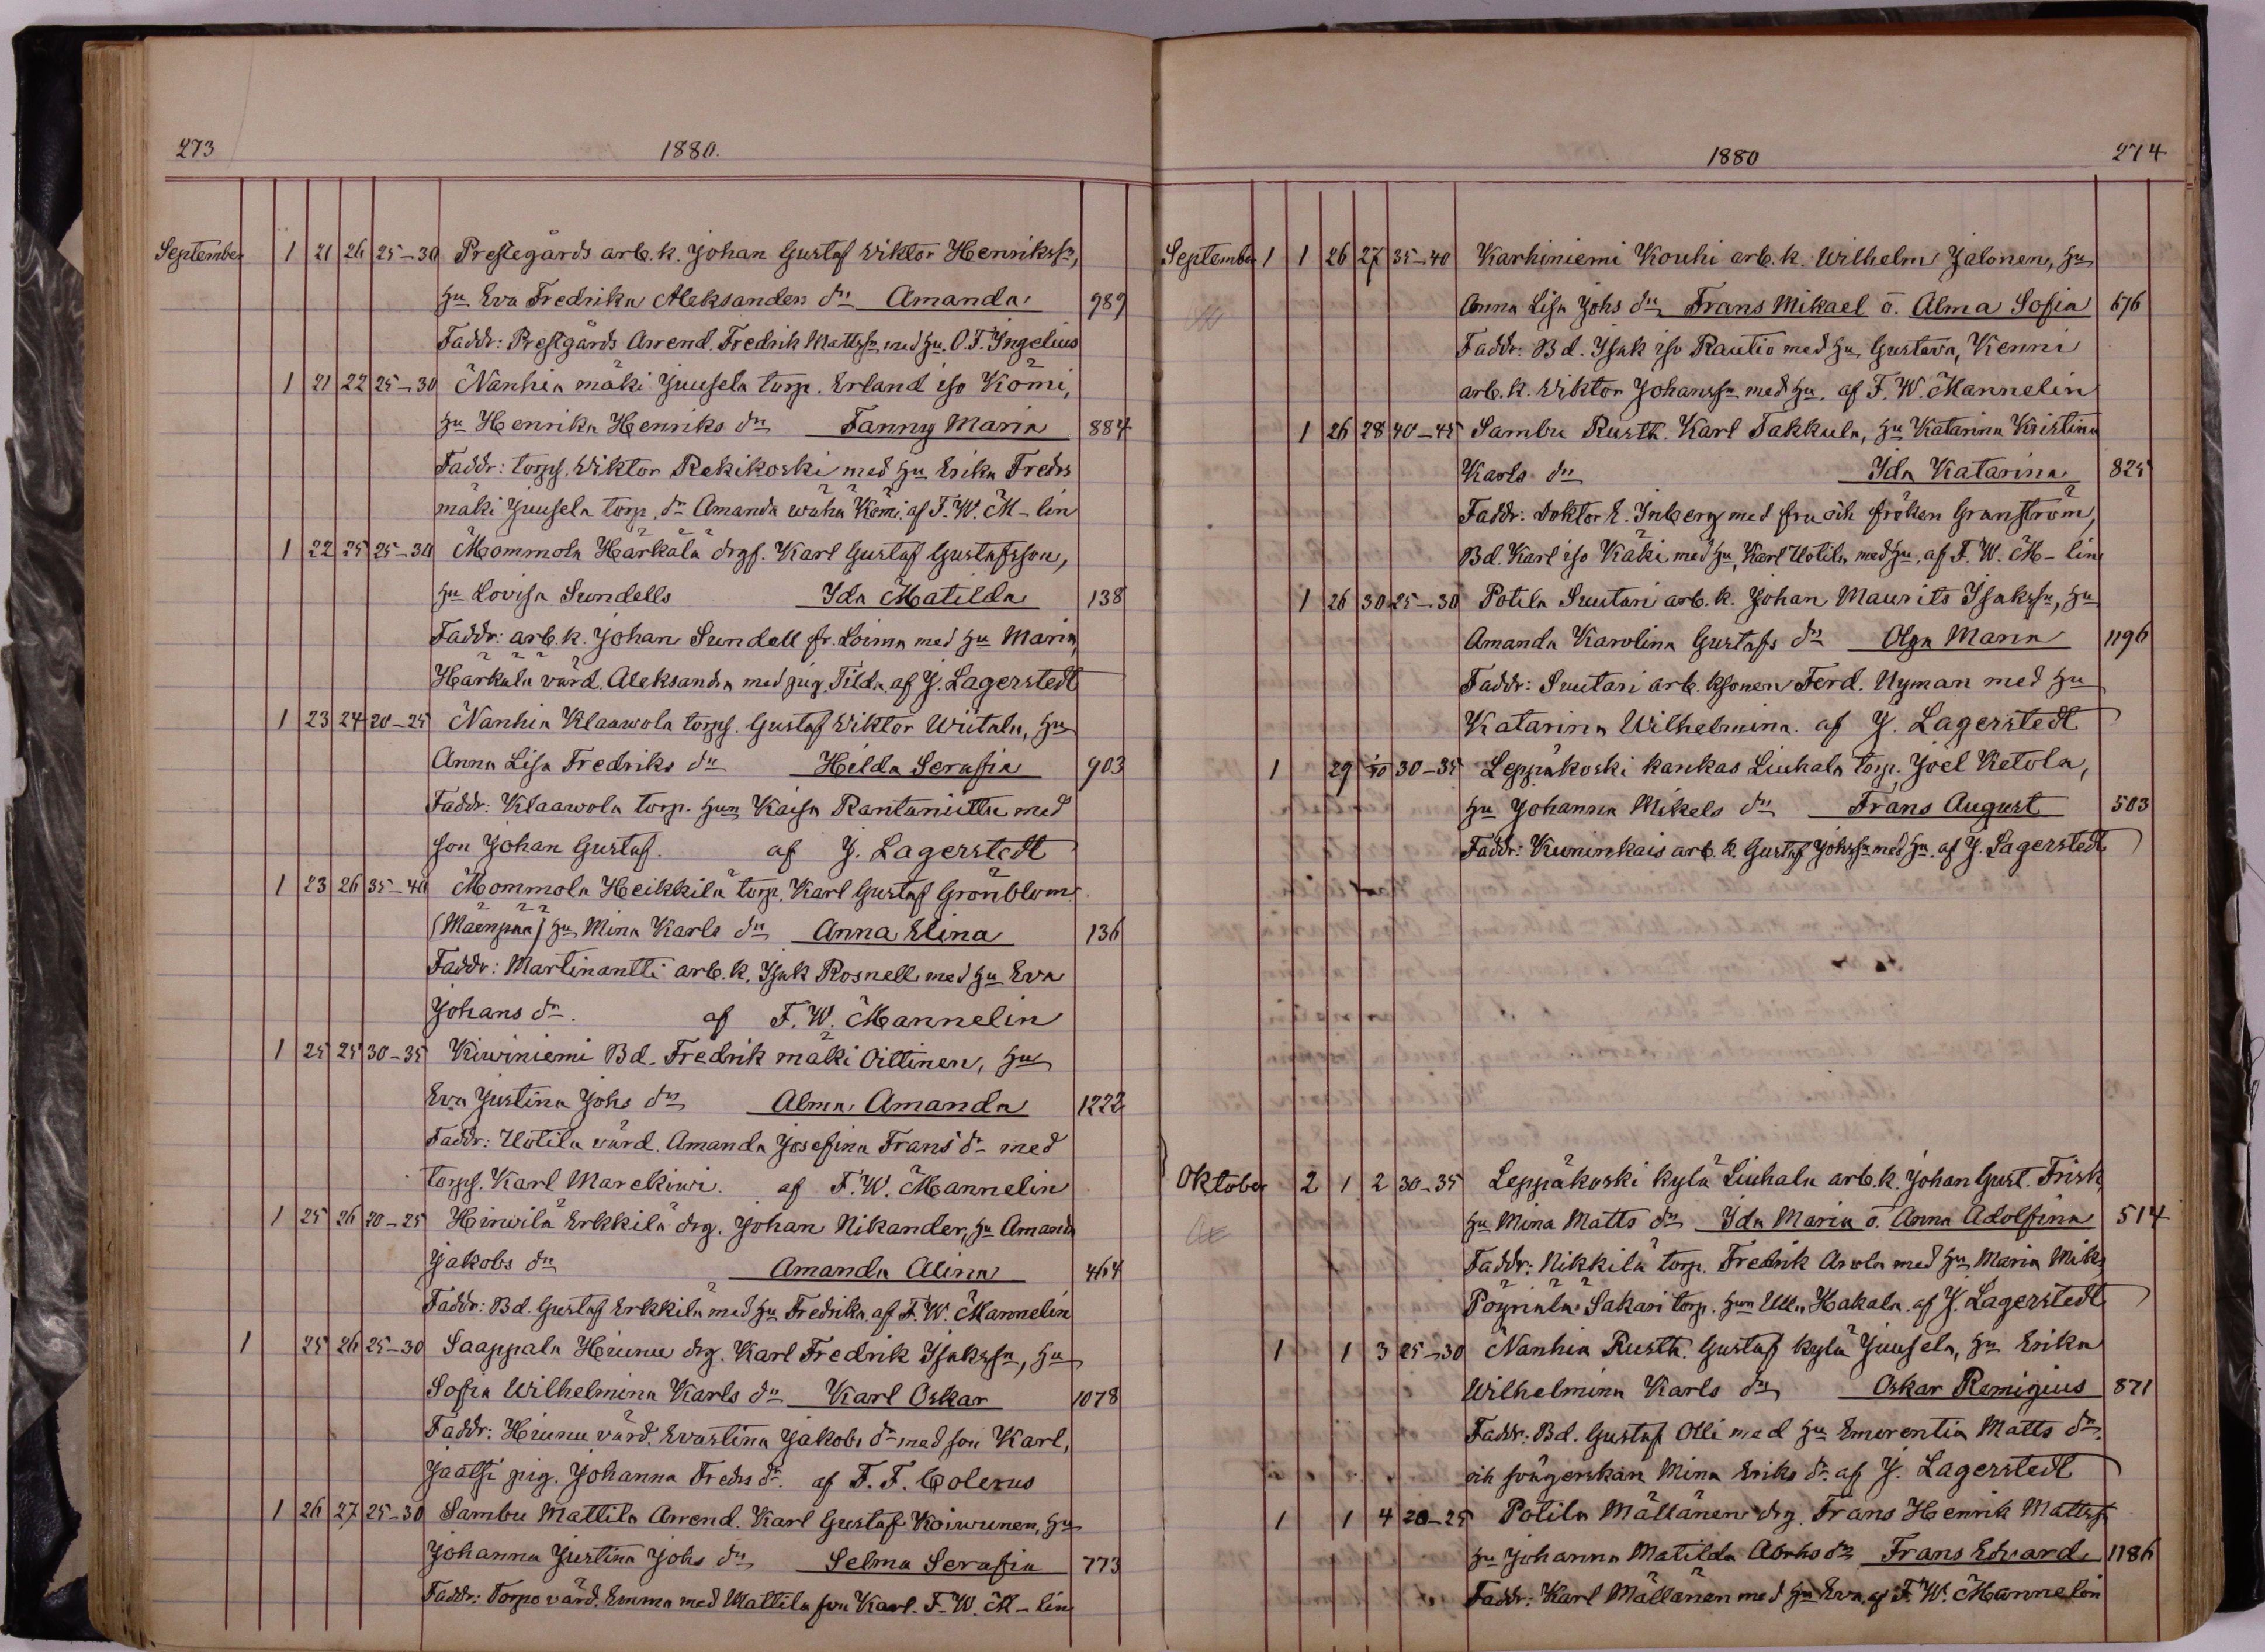 273 1880.
September 1 21 26 25-30 Prestegårds arb.k. Johan Gustaf Viktor Henrikssn, 
hu Eva Fredrika Aleksanders dn Amanda 989
Faddr: Prestgårds Arrend. Fredrik Mattssn med hu. O.F. Ingelius
1 21 22 25-30 Nanhia mäki Juusela torp. Erland iso Kömi,
hu Henrika Henriks dn Fanny Maria 884
Faddr: torps. Viktor Rekikoski med hu Erika Fredrs
mäki Juusela torp. dr Amanda wähä Kömi. af F.W. M-lin
1 22 25 25-30 Mommola Härkälä drgs. Karl Gustaf Gustafsson,
hu Lovisa Sundells Ida Matilda 138
Faddr: arb.k. Johan Sundell fr. Loima med hu Maria,
Härkälä värd. Aleksandra med pig. Tilda. af J. Lagerstedt
1 23 24 20-25 Nanhia Klaawola torps. Gustaf Viktor Wiitala, hu
Anna Lisa Fredriks dn Hilda Serafia 903
Faddr: Klaawola torp. hun Kaisa Rantaniittu med
son Johan Gustaf. af J. Lagerstedt
1 23 26 35-40 Mommola Heikkilä torp. Karl Gustaf Grönblom
(Mäenpää) hu Mina Karls dn Anna Elina 136
Faddr: Martinantti arb.k. Isak Rosnell med hu Eva
Johans dr. af F.W. Mannelin
1 25 25 30-35 Kiviniemi Bd. Fredrik mäki Oittinen, hu
Eva Justina Johs dn Alma Amanda 1222
Faddr: Uotila värd. Amanda Josefina Frans dr med
torps. Karl Marckiwi. af F.W. Mannelin
1 25 26 20-25 Hirwilä Erkkilä drg. Johan Nikander, hu Amanda
Jakobs dn Amanda Alina 464
Faddr: Bd. Gustaf Erkkilä med hu Fredrika. af F.W. Mannelin
1 25 26 25-30 Saappala Hiunu drg. Karl Fredrik Isakssn, hu
Sofia Wilhelmina Karls dn Karl Oskar 1078
Faddr: Hiunu värd. Evastina Jakobs dr med son Karl,
Jaatsi pig. Johanna Fredrs dr. af F.F. Colerus
1 26 27 25-30 Sambu Mattila Arrend. Karl Gustaf Koiwunen, hu
Johanna Justina Johs dn Selma Serafia 773
Faddr: Torpo värd. Emma med Mattila son Karl. F.W. M-lin
1880 274
September 1 1 26 27 35-40 Karhiniemi Kouhi arb.k. Wilhelm Jalonen, hu
Anna Lisa Johs dn Frans Mikael o. Alma Sofia 676
Faddr: Bd. Isak iso Rautio med hu Gustava, Kenni
arb.k. Viktor Johanssn med hu. af F.W. Mannelin
1 26 28 40-45 Sambu Rusth. Karl Takkula, hu Katarina Kristina
Karls dn Ida Katarina 825
Faddr: Doktor E. Inberg med fru och fröken Granström,
Bd. Karl iso Käki med hu, Karl Uotila med hu, af F.W. M-lin
1 26 30 25-30 Potila Suutari arb.k. Johan Maurits Isakssn, hu
Amanda Karolina Gustafs dn Olga Maria 1196
Faddr: Suutari arb. ksonen Ferd. Nyman med hu
Katarina Wilhelmina. af J. Lagerstedt
1 29 30-35 Leppäkoski kankas Liuhala torp. Joel Ketola,
hu Johanna Mikels dn Frans August 503
Faddr: Kuninkais arb.k. Gustaf Johssn med hu. af J. Lagerstedt
Oktober 2 1 2 30-35 Leppäkoski kylä Liuhala arb.k. Johan Gust. Frisk,
hu Mina Matts dn Ida Maria o. Anna Adolfina 514
Faddr: Nikkilä torp. Fredrik Arola med hu Maria Miks
Pöyriälä Sakari torp. hun Ulla Hakala. af J. Lagerstedt
1 1 3 25-30 Nanhia Rusth. Gustaf kylä Juusela, hu Erika
Wilhelmina Karls dn Oskar Remigius 871
Faddr: Bd. Gustaf Olli med hu Emerentia Matts dr.
och svägerskan Mina Eriks dr. af J. Lagerstedt
1 1 4 20-25 Potila Mältänen drg. Frans Henrik Mattss
hu Johanna Matilda Abrhs dn Frans Edvard 1186
Faddr: Karl Mältänen med hu Eva. af F.W. Mannelin